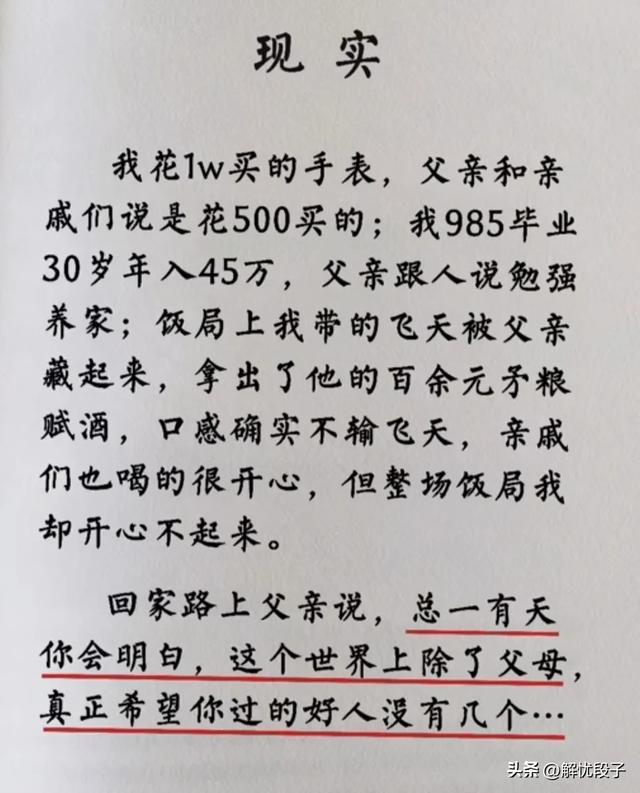 现实
我花1w买的手表，父亲和亲
戚们说是花500买的；我985毕业
30岁年入45万，父亲跟人说勉强
养家；饭局上我带的飞天被父亲
藏起来，拿出了他的百余元矛粮
赋酒，口感确实不输飞天，亲戚
们也喝的很开心，但整场饭局我
却开心不起来。
回家路上父亲说，总一有天
你会明白，这个世界上除了父母，
真正希望你过的好人没有几个…
头条 @解忧段子